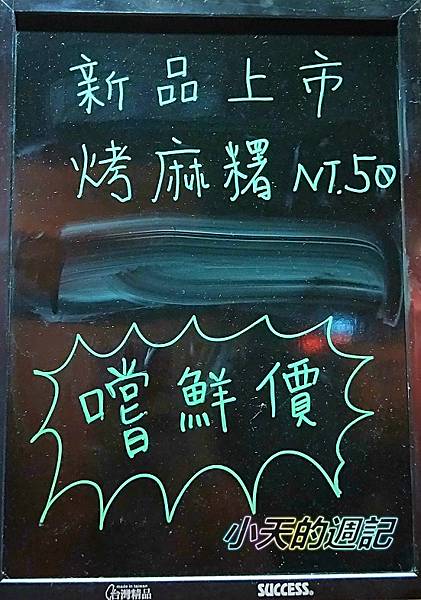 新品上市
烤麻糬 NT.50
嚐鮮價
小天的週記
made in taiwan
台灣精品 SUCCESS®